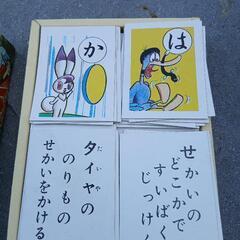 か
は
タイヤの
のりもの
せかいをかける
せかいの
どこかで
すいばく
じっけん